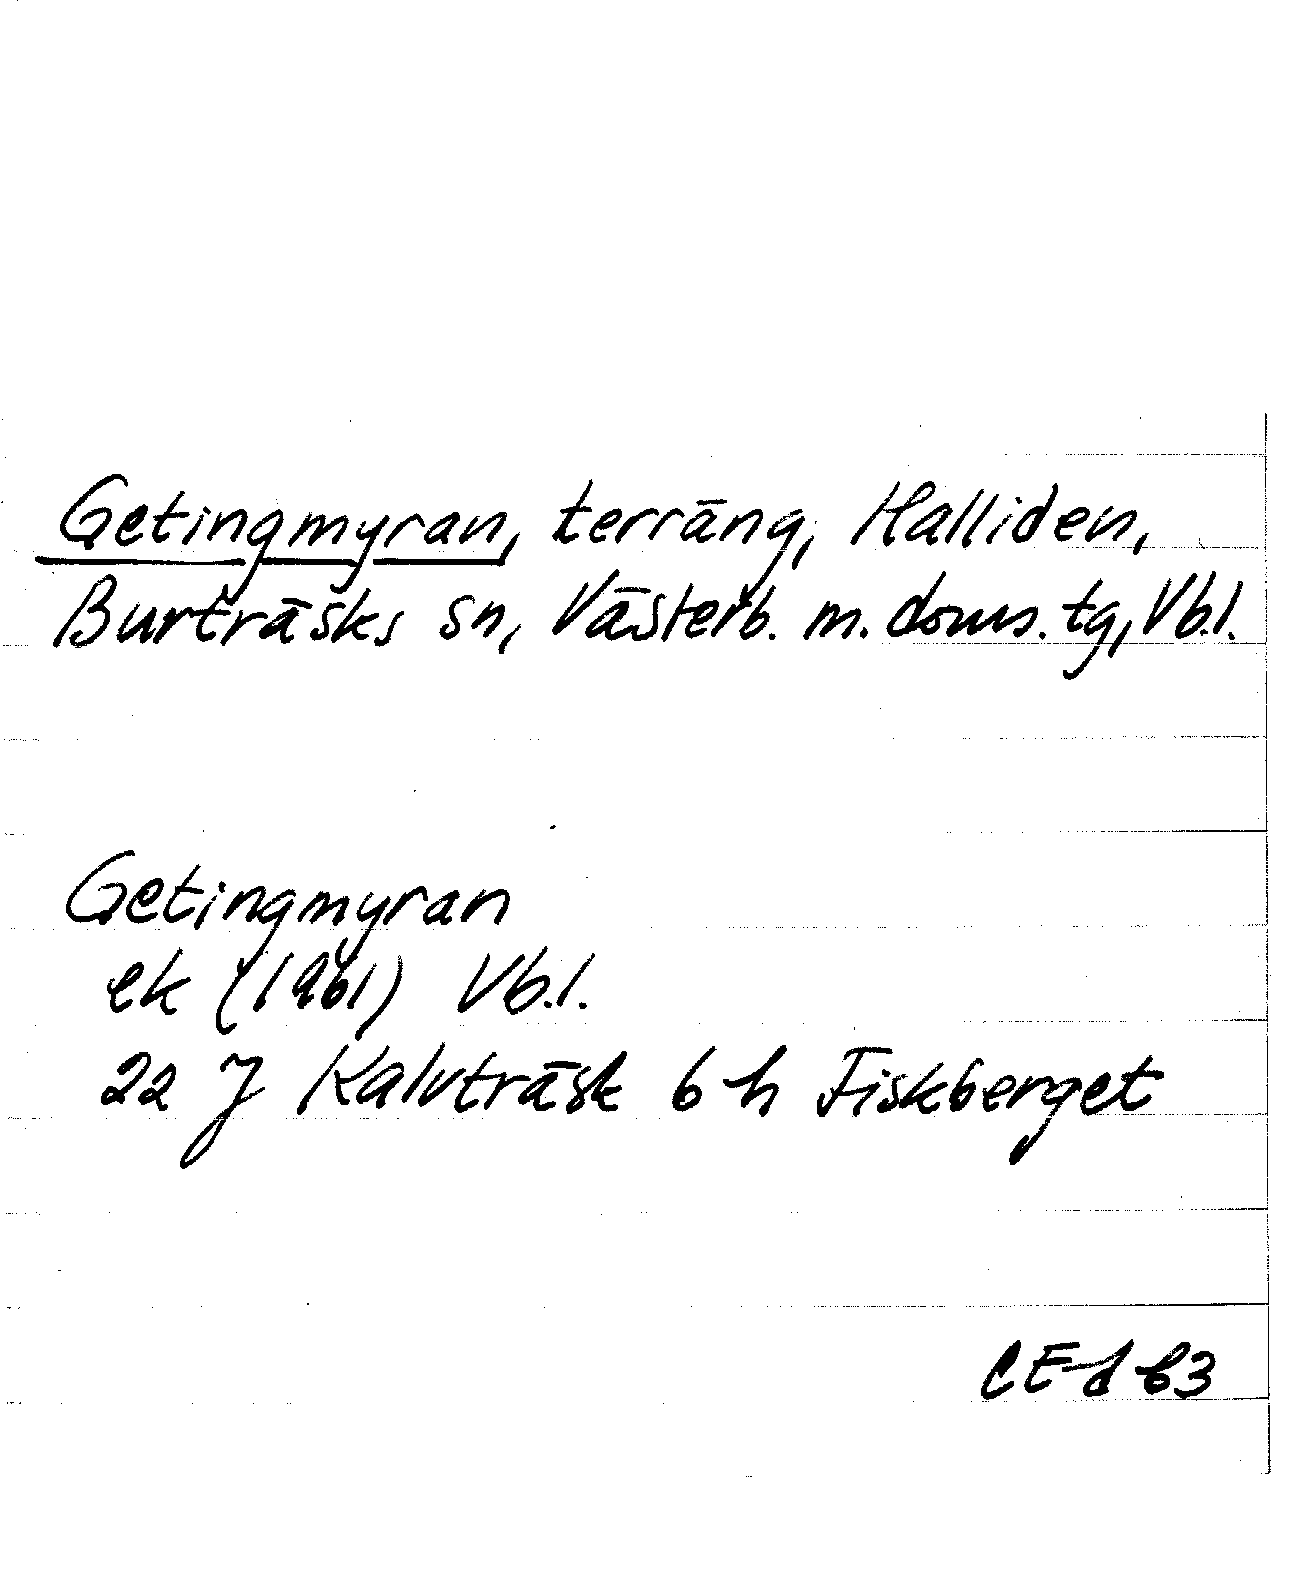 Getingmyran, terräng, Halliden,
Burträsks sn, Västerb. m. doms. tg, Vb.l.
Getingmyran
ek (1961) Vb.l.
22 J Kalvträsk 6 h Fiskberget